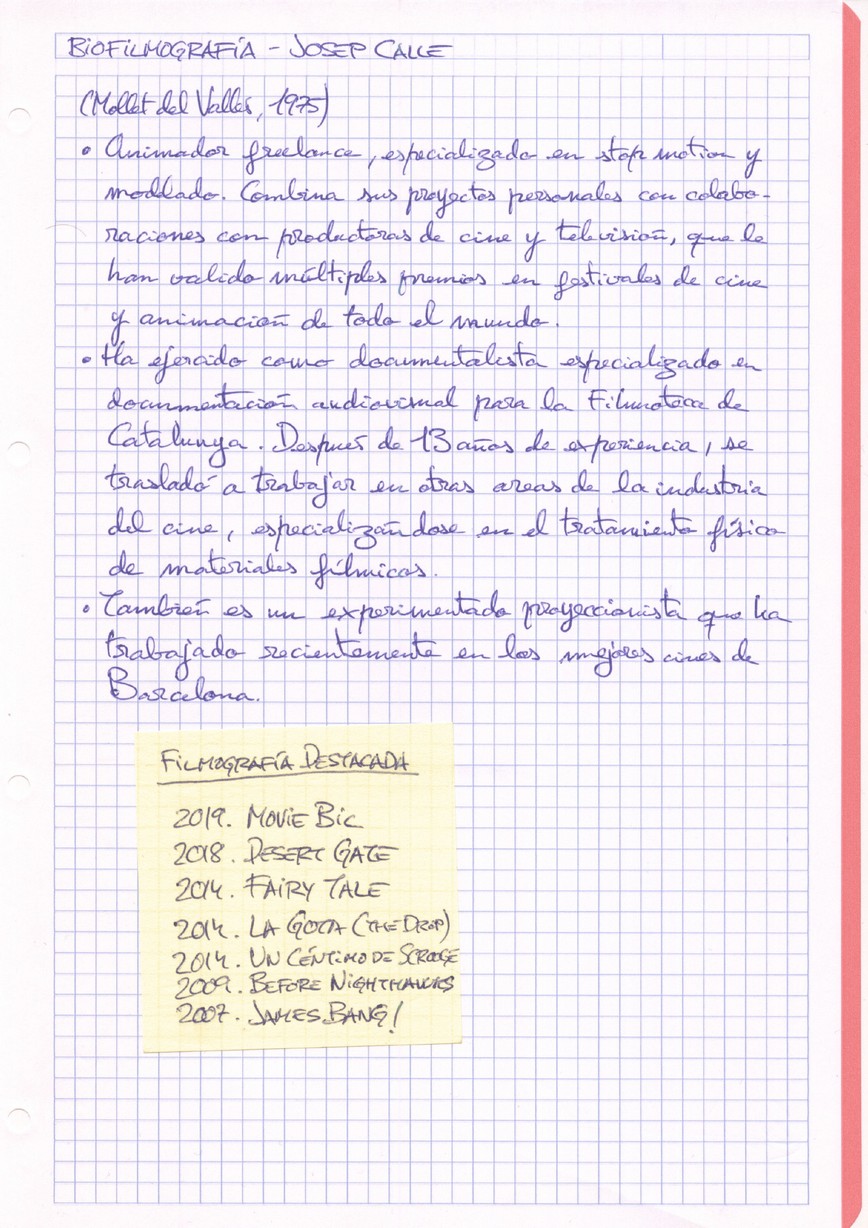 BIOFILMOGRAFÍA - JOSEP CALLE
(Mollet del Vallés, 1975)
• Animador freelance, especializado en stop motion y
modelado. Combina sus proyectos personales con colabo-
raciones con productoras de cine y televisión, que le
han valido múltiples premios en festivales de cine
y animación de todo el mundo.
• Ha ejercido como documentalista especializado en
documentación audiovisual para la Filmoteca de
Catalunya. Después de 13 años de experiencia, se
trasladó a trabajar en otras areas de la industria
del cine, especializándose en el tratamiento físico
de materiales fílmicos.
• También es un experimentado proyeccionista que ha
trabajado recientemente en los mejores cines de
Barcelona.
FILMOGRAFÍA DESTACADA
2019. MOVIE BIC
2018. DESERT GATE
2014. FAIRY TALE
2014. LA GOTA (THE DROP)
2014. UN CÉNTIMO DE SCROOGE
2009. BEFORE NIGHTHAWKS
2007. JAMES BANG!